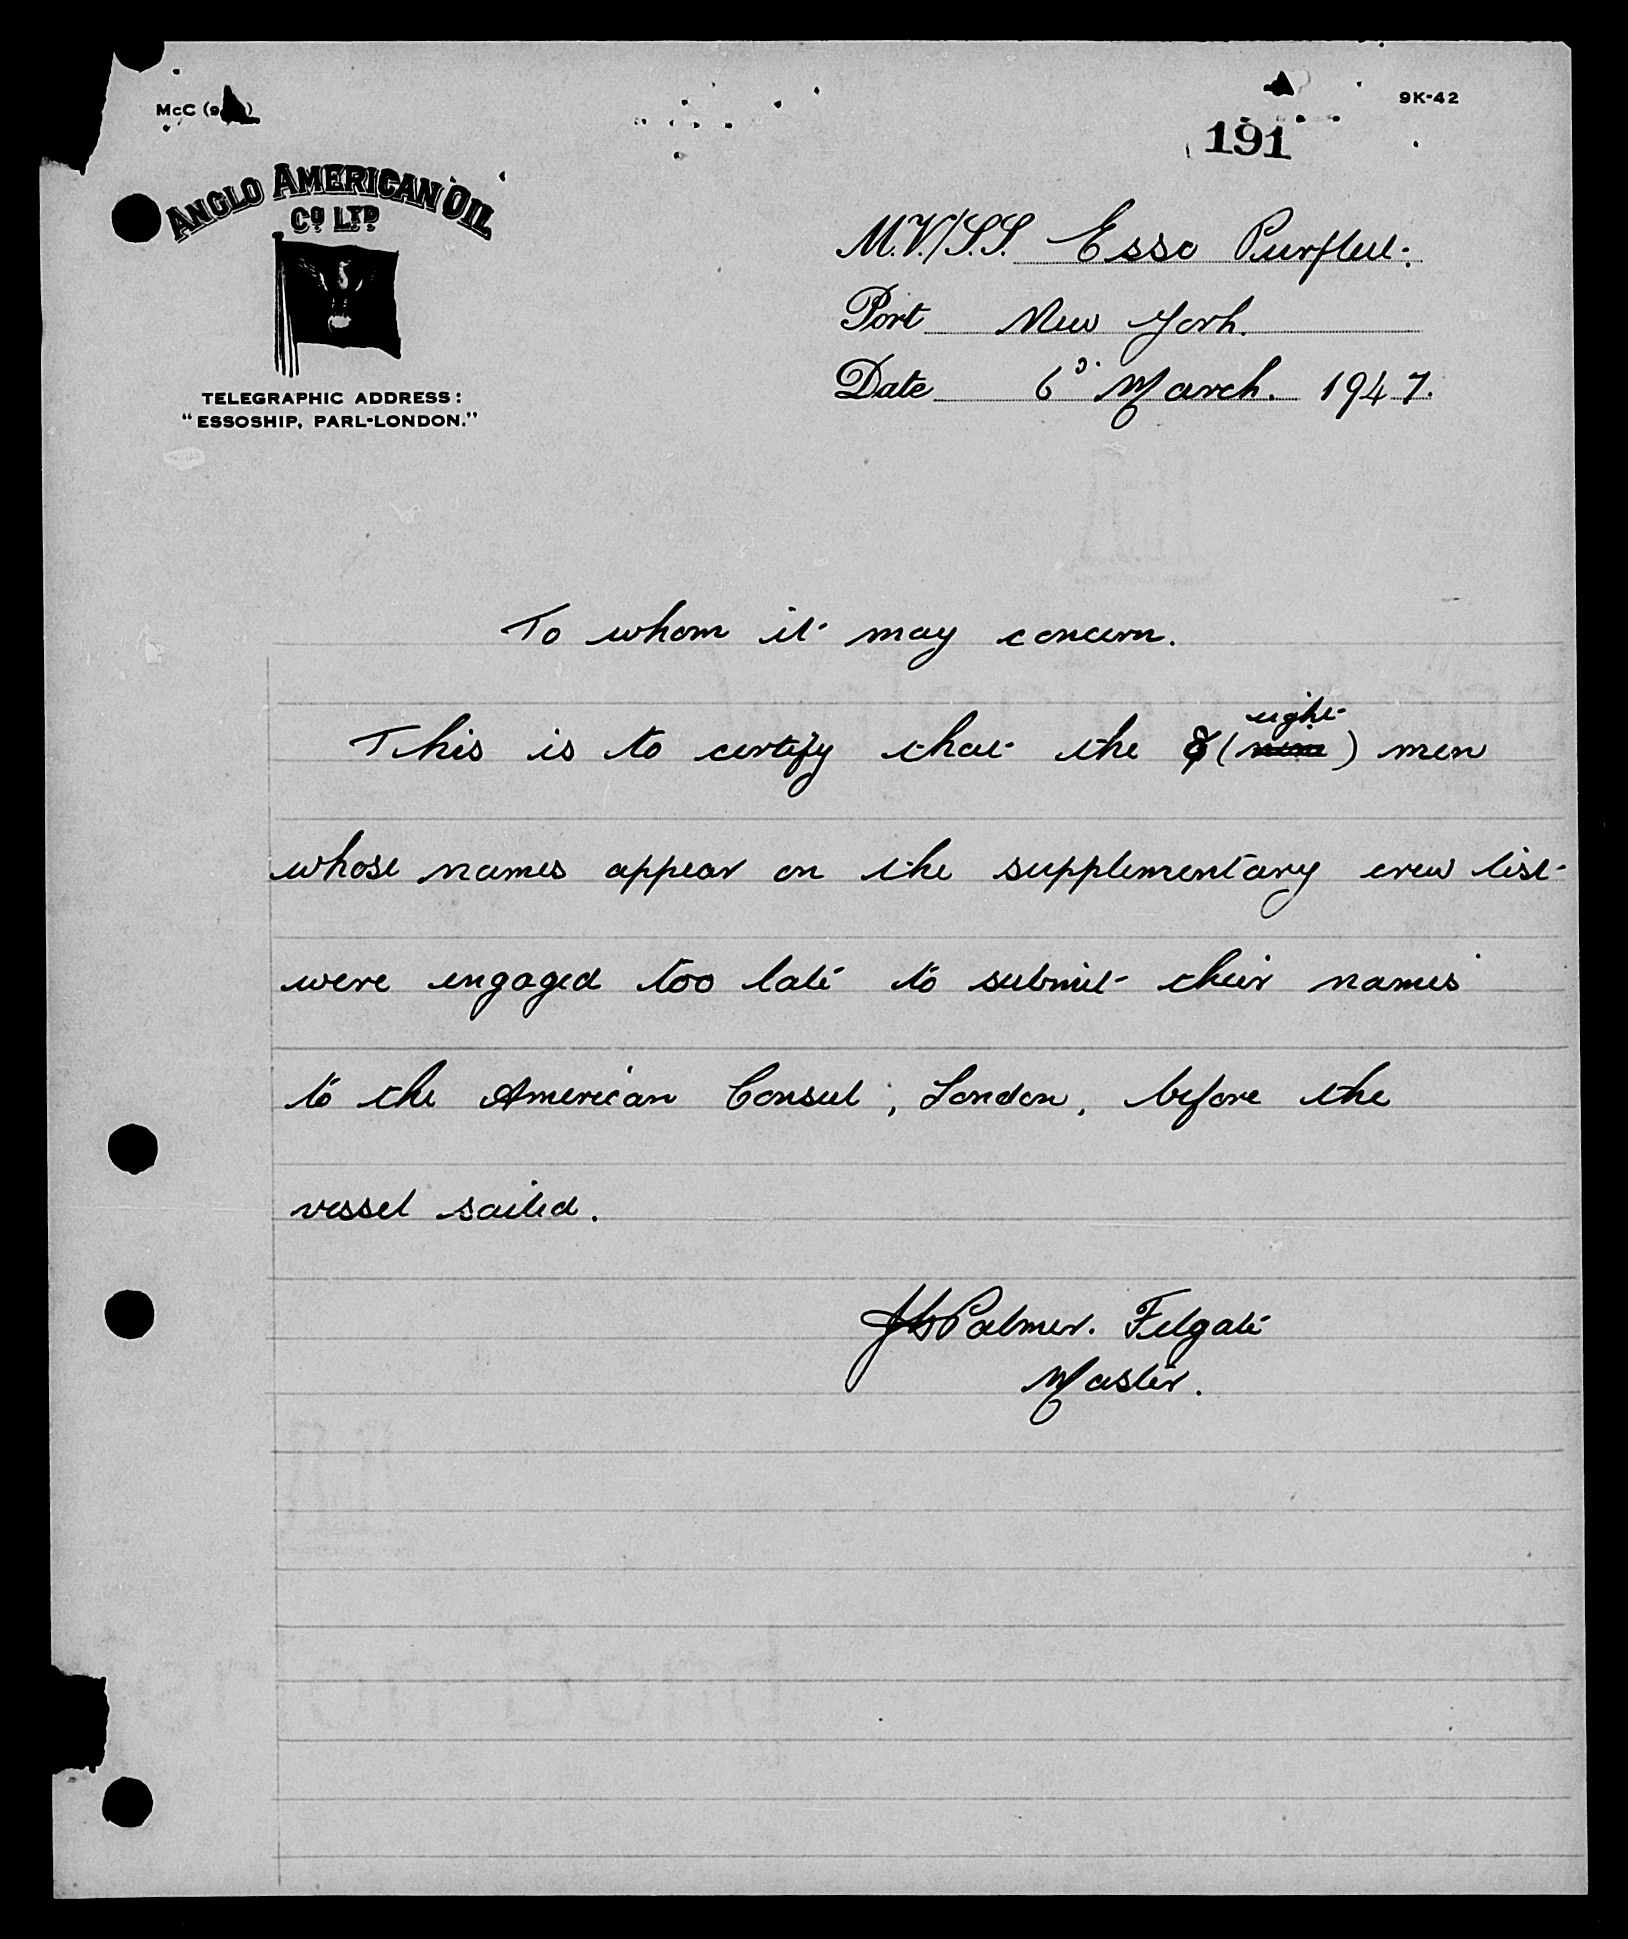 McC (9
9K-42
191
ANGLO AMERICAN OIL
CO. LTD.
TELEGRAPHIC ADDRESS:
"ESSOSHIP, PARL-LONDON."
M.V./S.S. Esso Purfleet.
Port New York.
Date 6 March. 1947.
To whom it may concern.
eight
This is to certify that the 8 (nine) men
whose names appear on the supplementary crew list
were engaged too late to submit their names
to the American Consul, London, before the
vessel sailed.
Palmer. Felgate
Master.